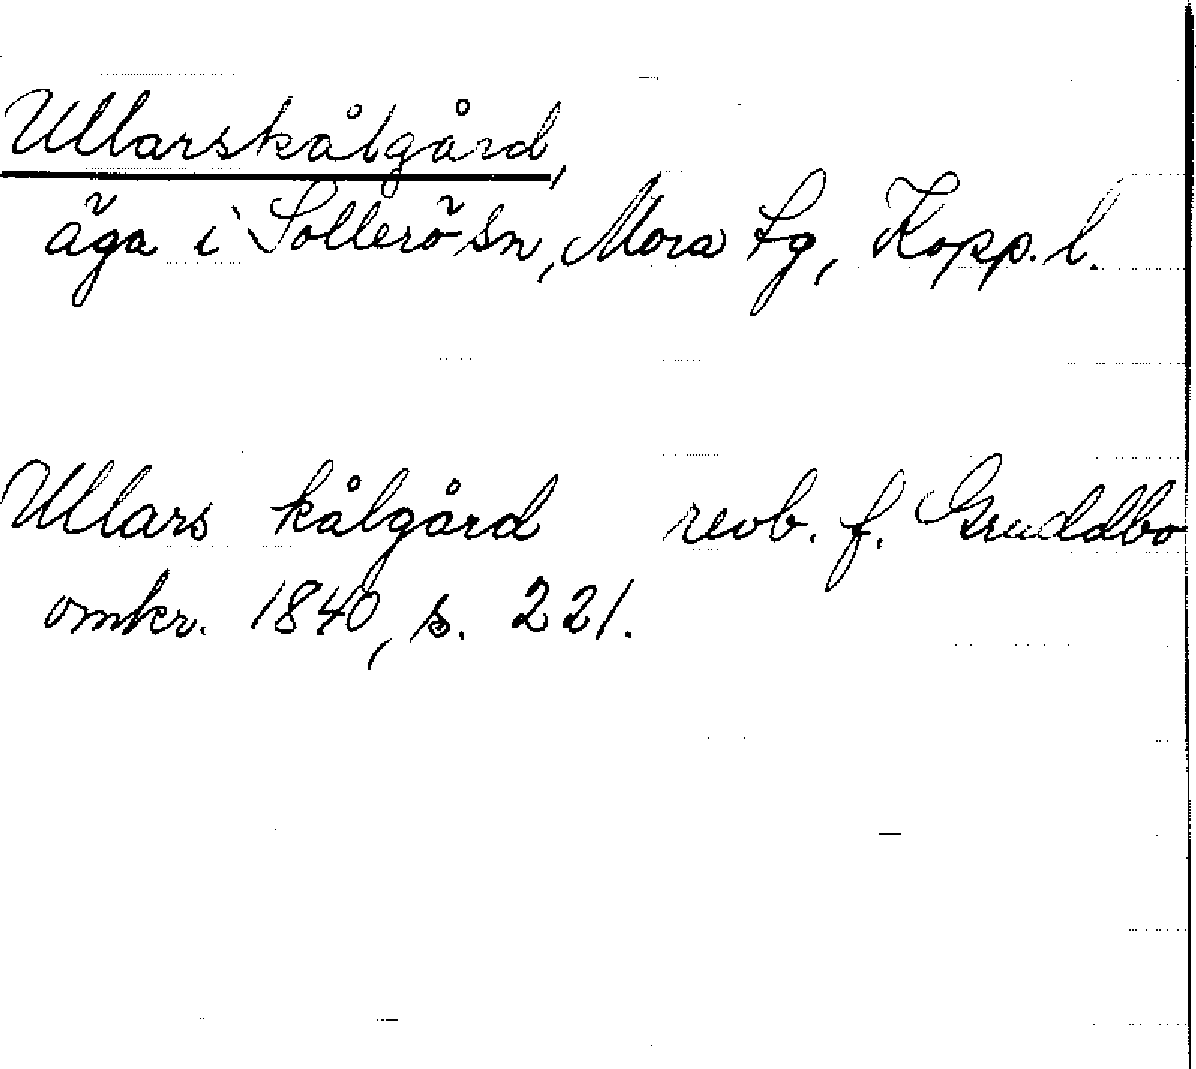 Ullarskålgård,
äga i Sollerö sn, Mora tg, Kopp. l.
Ullars kålgård revb. f. Gruddbo
omkr. 1840, s. 221.